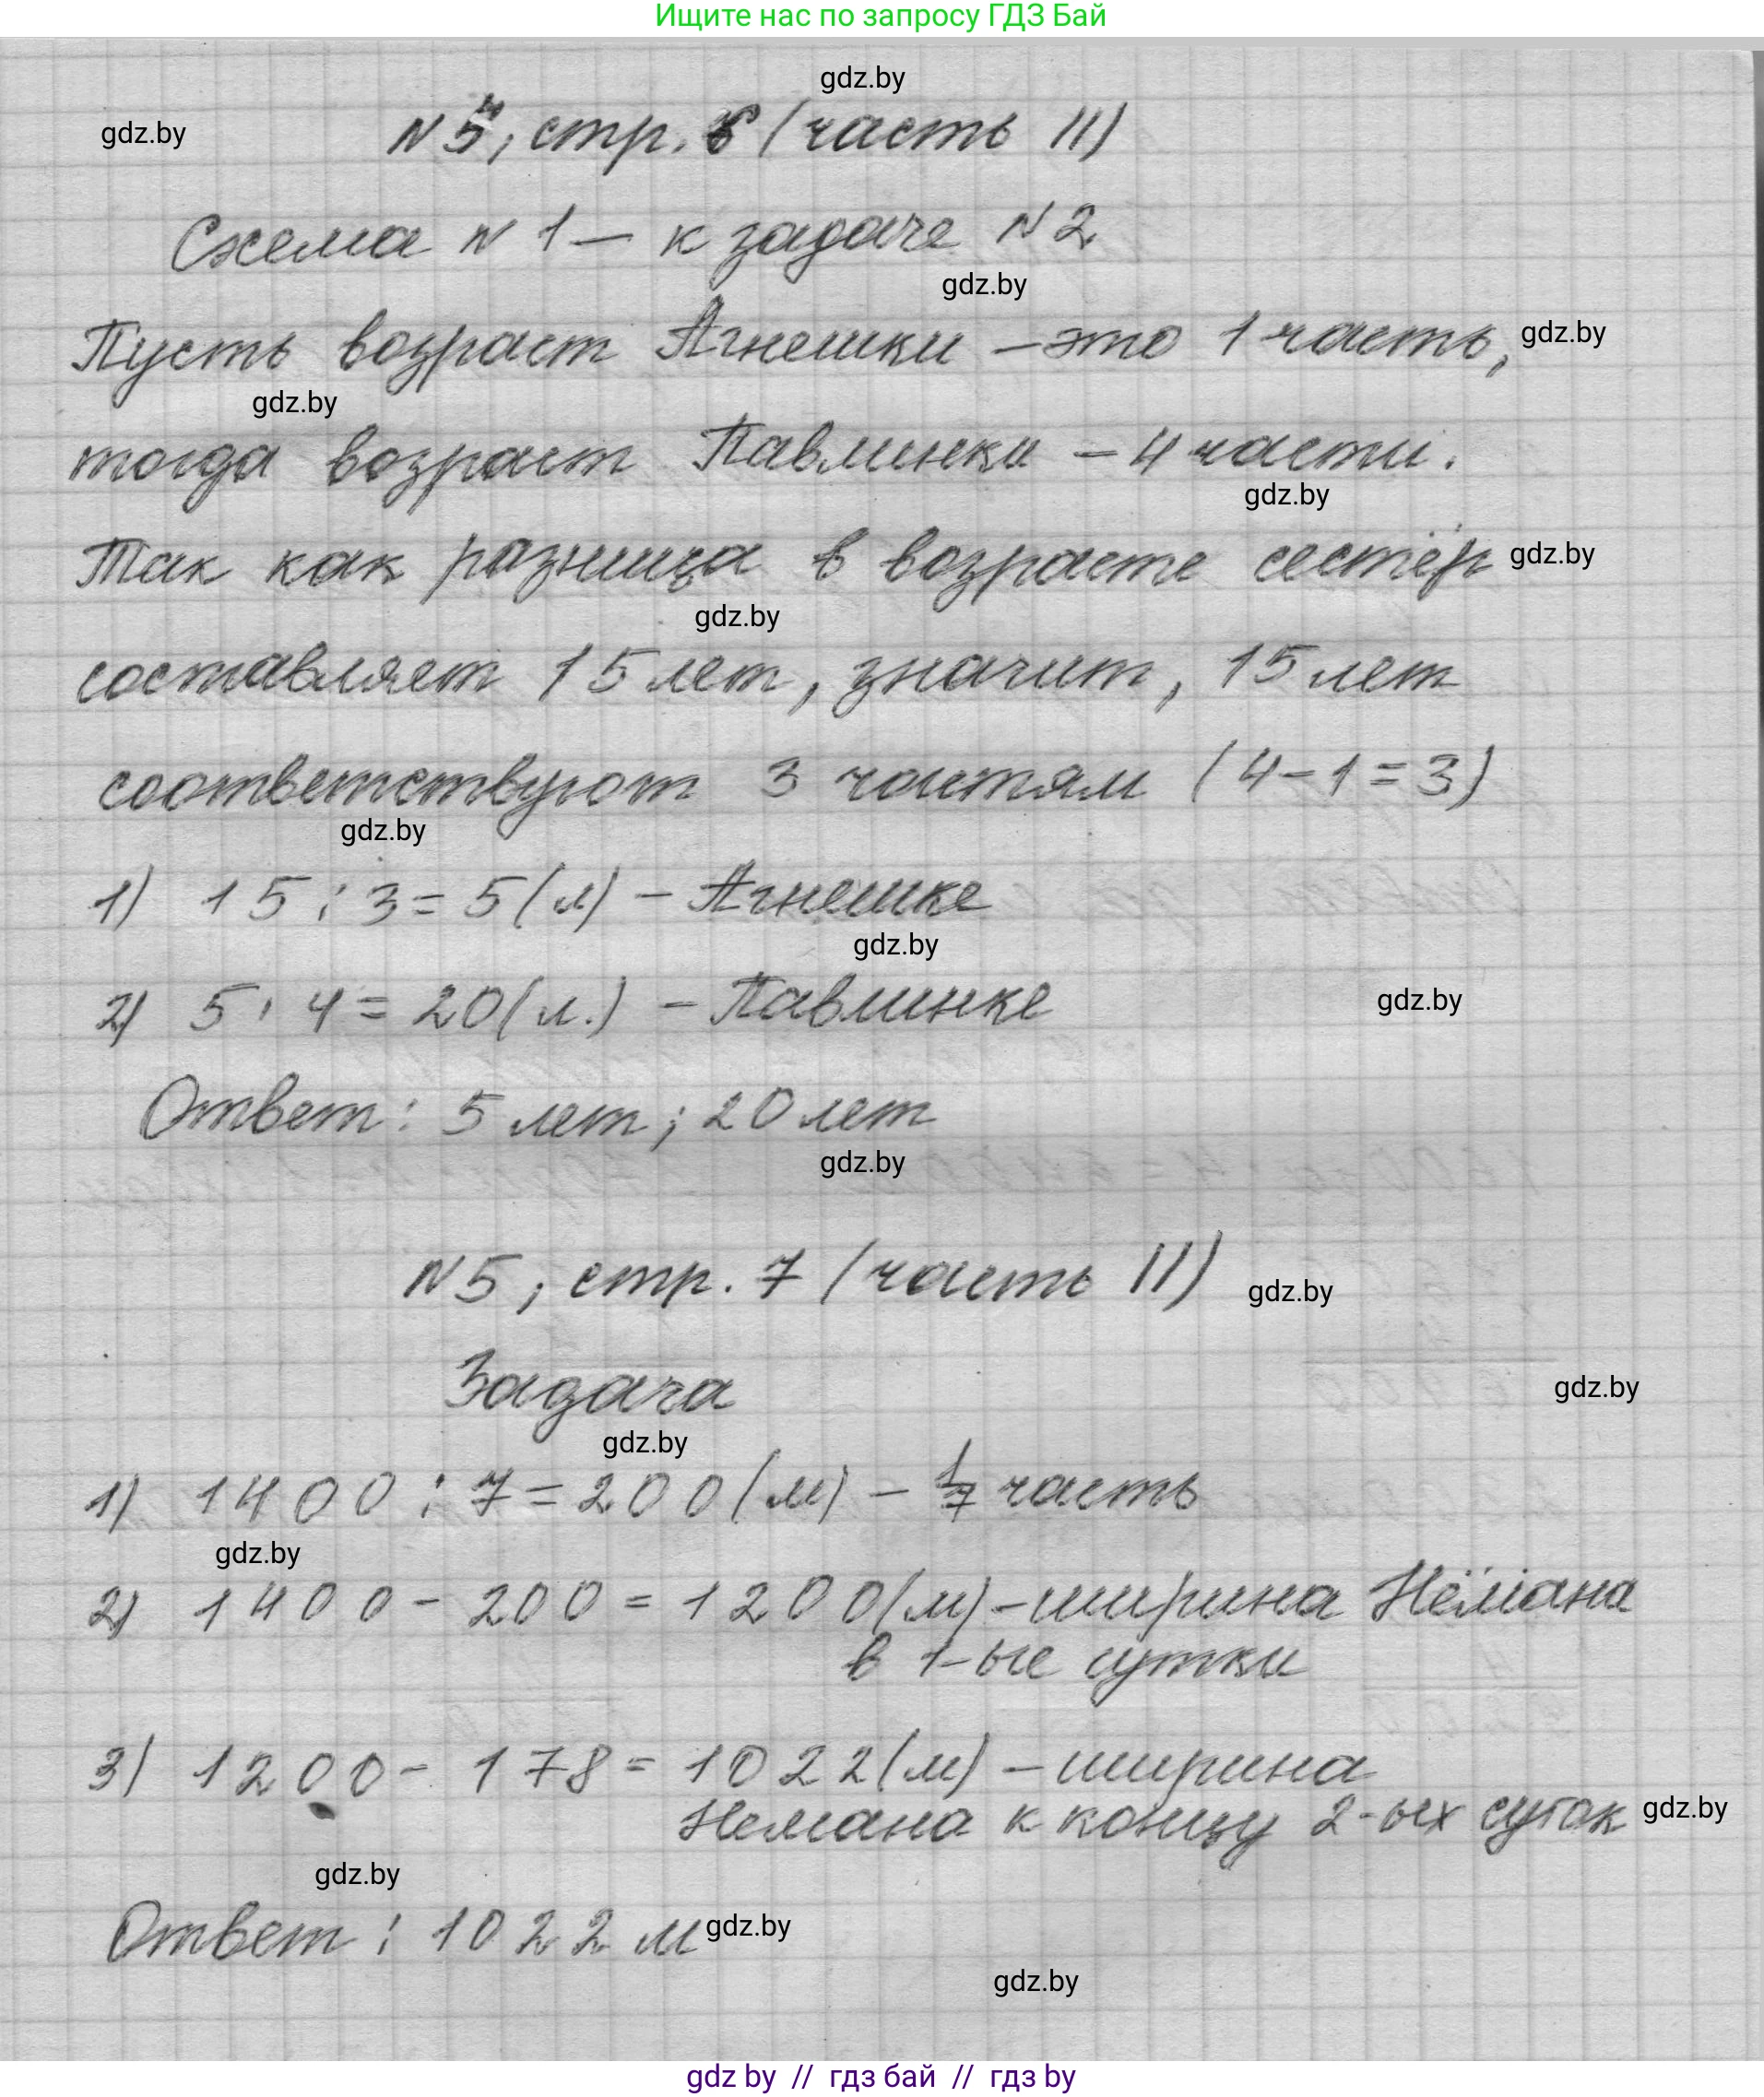 Ищите нас по запросу ГДЗ Бай
gdz.by
gdz.by
стр. (часть II)
Схема N 1 – к задаче N2
gdz.by
Пусть возраст Агнешки – это 1 часть, gdz.by
gdz.by
тогда возраст Павлинки – 4 части.
gdz.by
Так как разница в возрасте сестёр gdz.by
gdz.by
составляет 15 лет, значит, 15 лет
соответствуют 3 частям (4-1=3)
gdz.by
1) 15 : 3 = 5 (л) – Агнешке
gdz.by
2) 5 · 4 = 20 (л.) – Павлинке gdz.by
Ответ: 5 лет; 20 лет
gdz.by
N5, стр. 7 (часть II) gdz.by
Задача
gdz.by
gdz.by
1) 1400 : 7 = 200 (м) – 1/7 часть
gdz.by
2) 1400 - 200 = 1200 (м) – ширина Нёмана
в 1-ые сутки
3) 1200 - 178 = 1022 (м) – ширина
Немана к концу 2-ых суток gdz.by
gdz.by
Ответ: 1022 м gdz.by
gdz.by
gdz by // гдз бай // гдз by